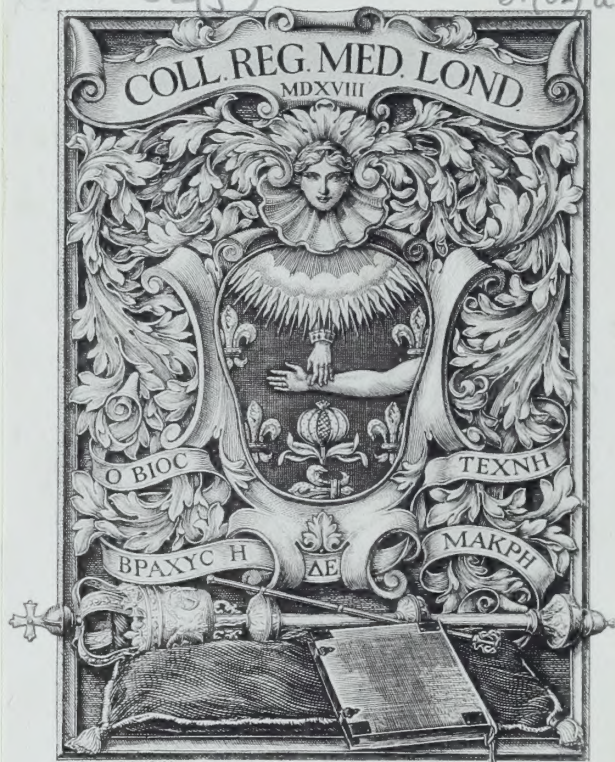 COLL. REG. MED. LOND.
MDXVIII
Ο ΒΙΟC
ΤΕΧΝΗ
ΒΡΑΧΥC Η
ΔΕ
ΜΑΚΡΗ